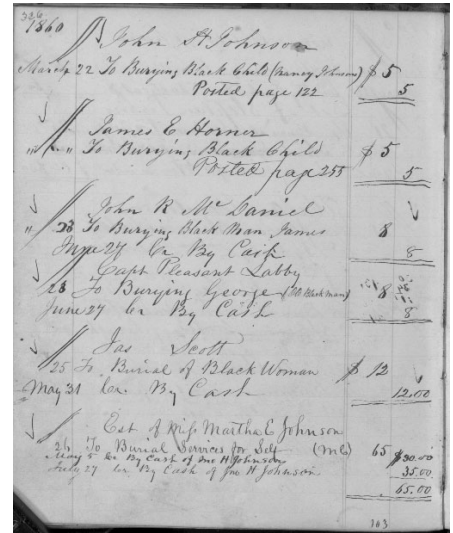 336
1860
John H Johnson
March 22 To Burying Black Child (Nancy Johnson) $ 5
Posted page 122 5
James E Horner
" " To Burying Black Child $ 5
Posted page 255 5
John R McDaniel
" 23 To Burying Black Man James 8
June 27 Cr By Cash 8
Capt Pleasant Labby
23 To Burying George (Black man) 8
June 27 Cr By Cash 8
Jas Scott
25 To Burial of Black Woman $ 12
May 31 Cr. By Cash 12.00
Est of Miss Martha E Johnson
26 To Burial Services for Self (MC) 65 $30.00
May 5 Cr By Cash of Jno H Johnson 35.00
July 27 Cr By Cash of Jno H Johnson 65.00
103